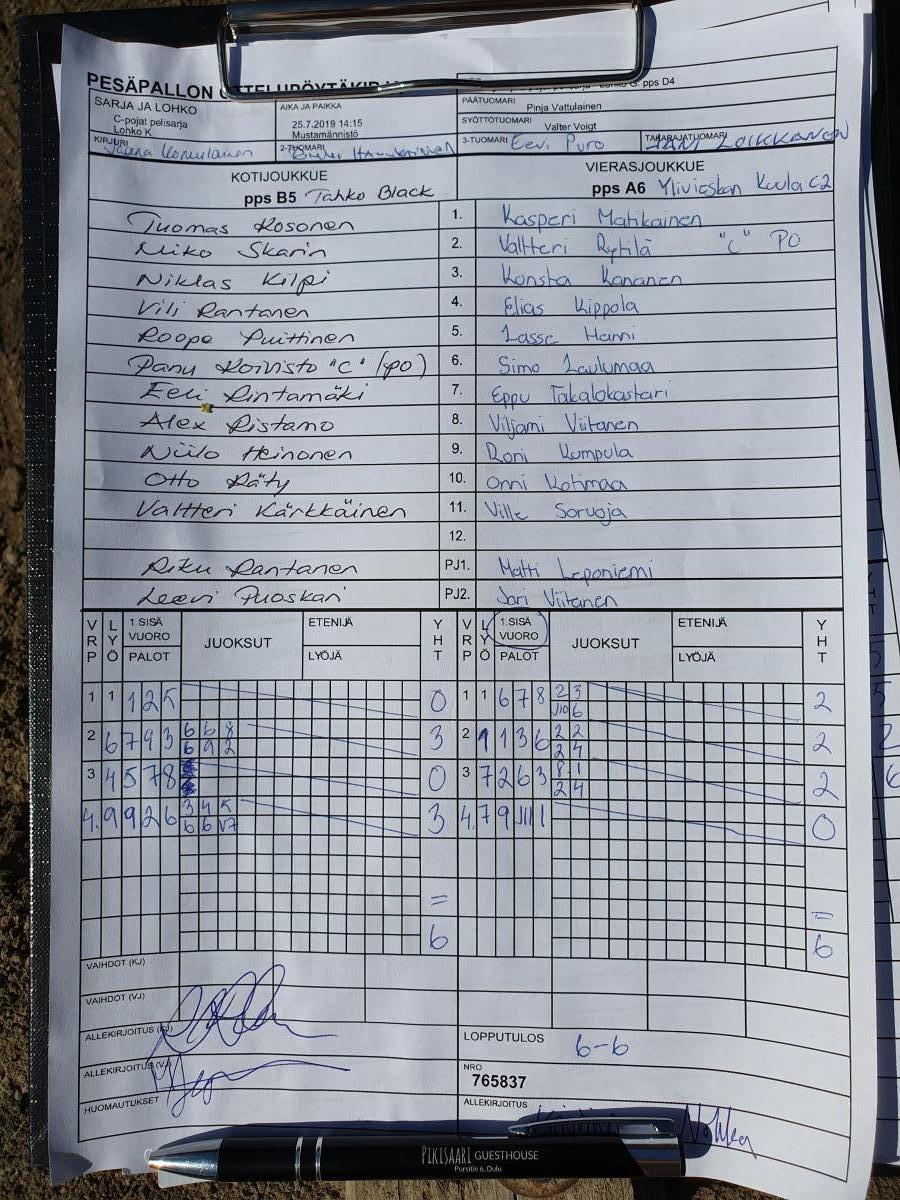 PESÄPALLON OTTELUPÖYTÄKIRJA
pps D4
SARJA JA LOHKO
C-pojat pelisarja
Lohko K
AIKA JA PAIKKA
25.7.2019 14:15
Mustamännistö
PÄÄTUOMARI
Pinja Vattulainen
SYÖTTÖTUOMARI
Valter Voigt
KIRJURI
2-TUOMARI
3-TUOMARI Eevi Puro
TAKARAJATUOMARI JANI LOIKKANEN
KOTIJOUKKUE
pps B5 Tahko Black
VIERASJOUKKUE
pps A6 Ylivieskan Kuula C2
Tuomas Kosonen 1. Kasperi Matikainen
Miko Skarin 2. Valtteri Rytilä "C" PO
Niklas Kilpi 3. Konsta Kananen
Vili Rantanen 4. Elias Kippola
Roope Puittinen 5. Lasse Hanni
Panu Koivisto "C" (PO) 6. Simo Laulumaa
Eeli Rintamäki 7. Eppu Takalokastari
Alex Ristamo 8. Viljami Viitanen
Niilo Heinonen 9. Roni Kumpula
Otto Räty 10. Onni Kotimaa
Valtteri Kärkkäinen 11. Ville Soruoja
12.
Riku Rantanen PJ1. Matti Leponiemi
Leevi Puoskari PJ2. Jari Viitanen
VRP LYÖ 1.SISÄ VUORO PALOT JUOKSUT ETENIJÄ LYÖJÄ YHT VRP LYÖ 1.SISÄ VUORO PALOT JUOKSUT ETENIJÄ LYÖJÄ YHT
1 1 1 2 5 0 1 1 6 7 8 2 3 2
J10 6
2 6 7 9 3 6 6 8 3 2 1 1 3 6 2 2 2
6 9 2 2 4
3 4 5 7 8 0 3 7 2 6 3 8 1 2
2 4
4. 9 9 2 6 3 4 5 3 4. 7 9 J11 1 0
6 6 V7
= =
6 6
VAIHDOT (KJ)
VAIHDOT (VJ)
ALLEKIRJOITUS (KJ)
LOPPUTULOS 6-6
ALLEKIRJOITUS (VJ)
NRO
765837
HUOMAUTUKSET
ALLEKIRJOITUS
PIKISAARI GUESTHOUSE
Pursitie 6, Oulu